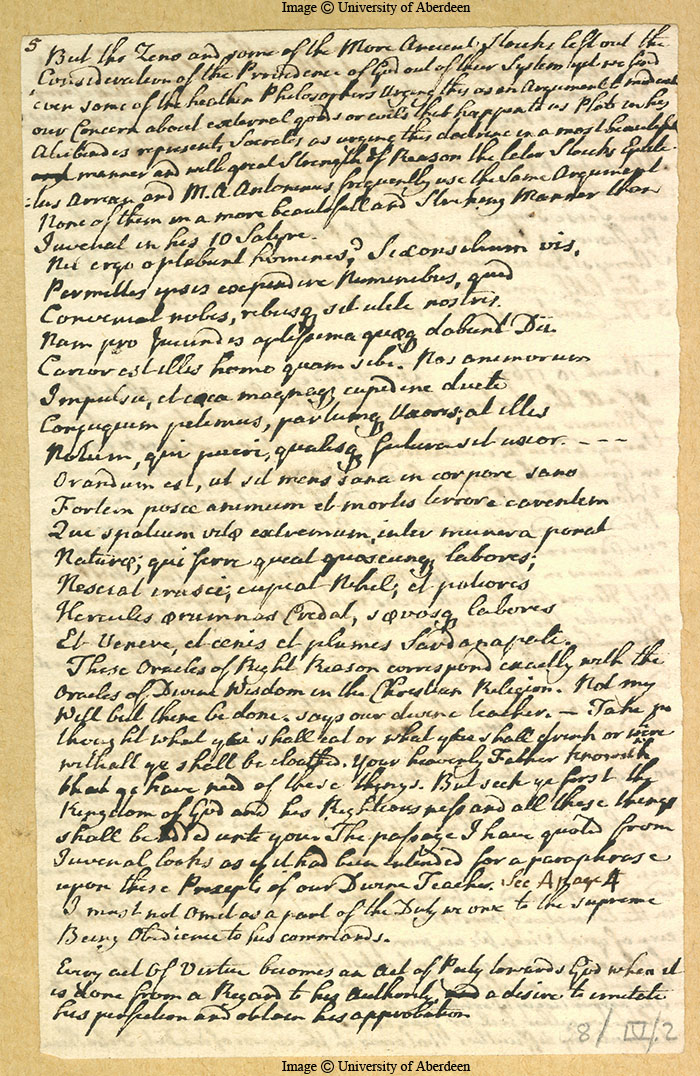 Image © University of Aberdeen
5
But tho Zeno and some of the More Ancient Stoicks left out the
Consideration of the Providence of God out of their System yet we find
even some of the heathen Philosophers Urging this as an Argument to moderate
our Concern about external goods or evils that happen to us Plato in his
Alcibiades represents Socrates as urging this doctrine in a most beautifull
and manner and with great Strength of Reason the later Stoicks Epicte
-tus Arrian and M. A. Antoninus frequently use the Same Argument
None of them in a more beautifull and Striking Manner than
Juvenal in his 10 Satyre.
Nil ergo optabunt homines? Si consilium vis,
Permittes ipsis expendere Numinibus, quid
Conveniat nobis, rebusq sit utile nostris.
Nam pro Jucundis aptissima quæq dabunt Dii
Carior est illis homo quam sibi. Nos animorum
Impulsu, et cæca magnaq cupidine ducti
Conjugium petimus, partumq Uxoris; at illis
Notum, qui pueri, qualisq futura sit uxor. - - -
Orandum est, ut sit mens sana in corpore sano
Fortem posce animum et mortis terrore carentem
Qui spatium vitæ extremum, inter munera ponat
Naturæ; qui ferre queat quoscunq labores;
Nesciat irasci; cupiat Nihil; et potiores
Herculis ærumnas Credat, sævosq labores
Et Venere, et cenis et plumis Sardanapali.
These Oracles of Right Reason correspond exactly with the
Oracles of Divine Wisdom in the Christian Religion. Not my
Will but thine be done. says our divine teacher. — Take no
thought what ye shall eat or what ye shall drink or
withall ye shall be cloathed. Your heavenly Father knoweth
that ye have need of these things. But seek ye first the
Kingdom of God and his Righteousness and all these things
shall be added unto you. The passage I have quoted from
Juvenal looks as if it had been intended for a paraphrase
upon these Precepts of our Divine Teacher. See A page 4
I must not omit as a part of the Duty we owe to the supreme
Being Obedience to his commands.
Every act Of Virtue becomes an Act of Piety towards God when it
is done from a Regard to his Authority and a desire to imitate
his perfection and obtain his approbation
8/IV/2
Image © University of Aberdeen